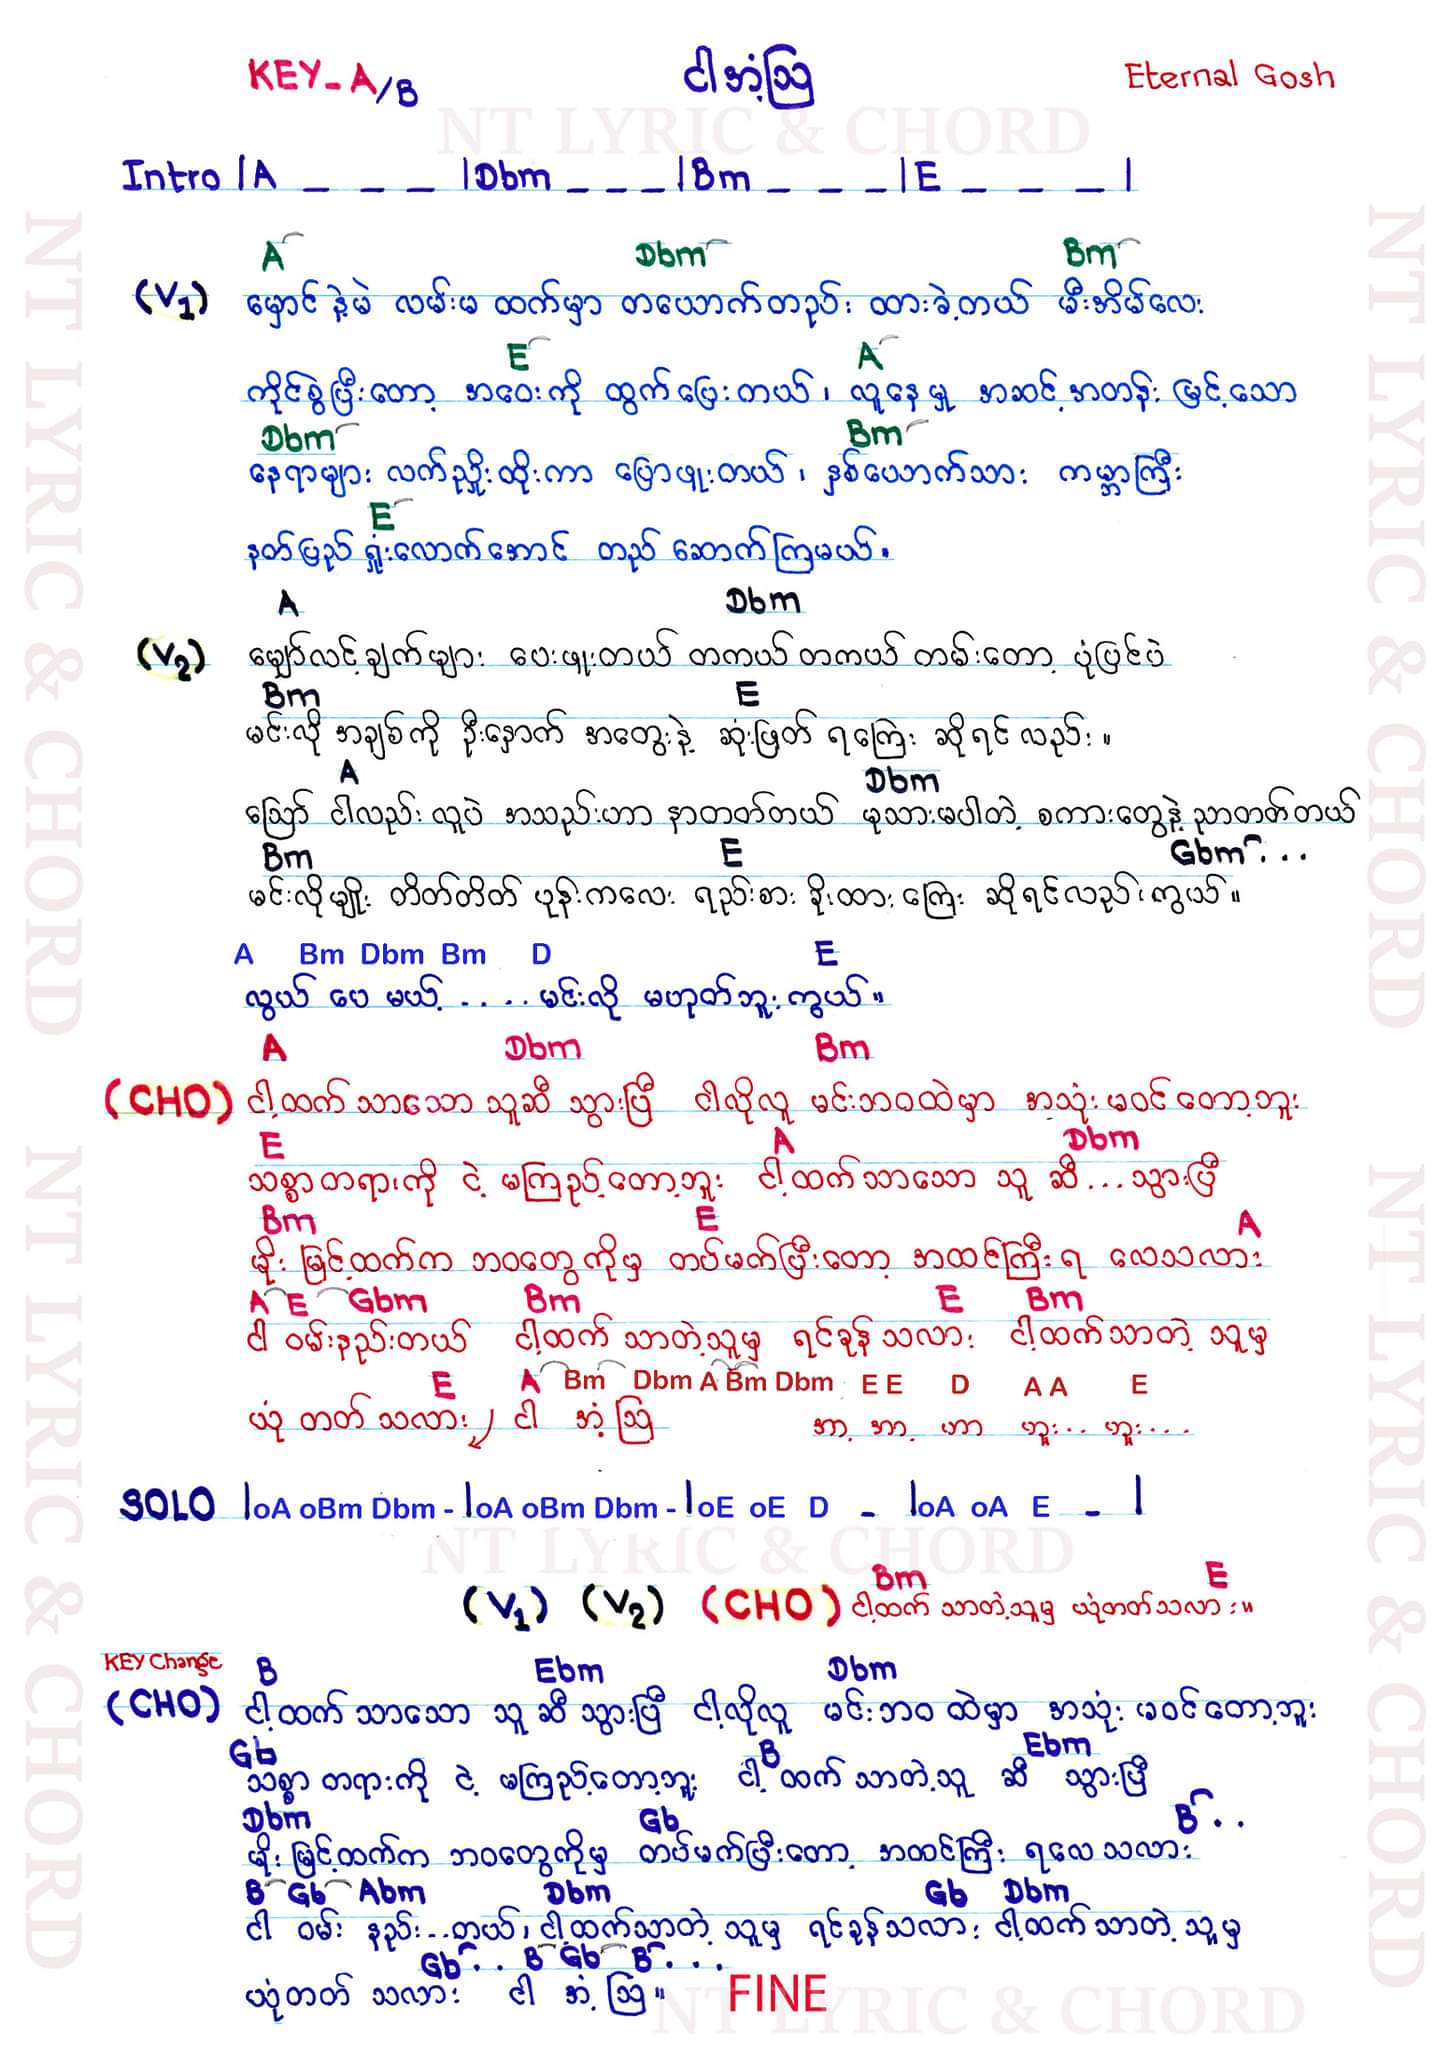 KEY - A/B ငါအံ့ဩ Eternal Gosh
NT LYRIC & CHORD
Intro |A _ _ _ |Dbm _ _ _ |Bm _ _ _ |E _ _ _ |
A Dbm Bm
(V1) မှောင်နဲ့မဲ လမ်းမ ထက်မှာ တယောက်တည်း ထားခဲ့တယ် မီးအိမ်လေး
E A
ကိုင်စွဲပြီးတော့ အဝေးကို ထွက်ပြေးတယ်၊ လူနေမှု အဆင့်အတန်း မြင့်သော
Dbm Bm
နေရာများ လက်ညှိုးထိုးကာ ပြောဖူးတယ်၊ နှစ်ယောက်သား ကမ္ဘာကြီး
E
နတ်ပြည် ရှုံးလောက်အောင် တည်ဆောက်ကြမယ်။
A Dbm
(V2) မျှော်လင့်ချက်များ ပေးဖူးတယ် တကယ်တကယ် တမ်းတော့ ပုံပြင်ပဲ
Bm E
မင်းလို အချစ်ကို ဦးနှောက် အတွေးနဲ့ ဆုံးဖြတ် ရကြေး ဆိုရင်လည်း။
A Dbm
ဪ ငါလည်းလူပဲ အသည်းဟာ နာတတ်တယ် မုသားမပါတဲ့ စကားတွေနဲ့ညာတတ်တယ်
Bm E Gbm...
မင်းလိုမျိုး တိတ်တိတ် ပုန်းကလေး ရည်းစား ခိုးထားကြေး ဆိုရင်လည်းကွယ်။
A Bm Dbm Bm D E
လွယ် ပေ မယ့်..... မင်းလို မဟုတ်ဘူးကွယ်။
A Dbm Bm
(CHO) ငါ့ထက်သာသော သူဆီ သွားပြီ ငါလိုလူ မင်းဘဝထဲမှာ အသုံးမဝင်တော့ဘူး
E A Dbm
သစ္စာတရားကို ငဲ့ မကြည့်တော့ဘူး ငါ့ထက်သာသော သူ ဆီ...သွားပြီ
Bm E A
မိုးမြင့်ထက်က ဘဝတွေကိုမှ တပ်မက်ပြီးတော့ အထင်ကြီးရ လေသလား
A E Gbm Bm E Bm
ငါ ဝမ်းနည်းတယ် ငါ့ထက်သာတဲ့သူမှ ရင်ခုန်သလား ငါ့ထက်သာတဲ့ သူမှ
E A Bm Dbm A Bm Dbm E E D A A E
ယုံတတ်သလား ငါ အံ့ ဩ အာ့ အာ့ ဟာ ဟူး... ဟူး....
SOLO |oA oBm Dbm - |oA oBm Dbm - |oE oE D - |oA oA E - |
NT LYRIC & CHORD
Bm E
(V1) (V2) (CHO) ငါ့ထက်သာတဲ့သူမှ ယုံတတ်သလား။
KEY Change
B Ebm Dbm
(CHO) ငါ့ထက်သာသော သူ ဆီ သွားပြီ ငါ့လိုလူ မင်းဘဝ ထဲမှာ အသုံးမဝင်တော့ဘူး
Gb B Ebm
သစ္စာတရားကို ငဲ့ မကြည့်တော့ဘူး ငါ့ထက်သာတဲ့သူ ဆီ သွားပြီ
Dbm Gb B..
မိုးမြင့်ထက်က ဘဝတွေကိုမှ တပ်မက်ပြီးတော့ အထင်ကြီး ရလေသလား
B Gb Abm Dbm Gb Dbm
ငါ ဝမ်း နည်း...တယ်၊ ငါ့ထက်သာတဲ့ သူမှ ရင်ခုန်သလား ငါ့ထက်သာတဲ့ သူမှ
Gb.. B Gb B...
ယုံတတ် သလား ငါ အံ့ ဩ။ FINE
NT LYRIC & CHORD
NT LYRIC & CHORD
NT LYRIC & CHORD
NT LYRIC & CHORD
NT LYRIC & CHORD